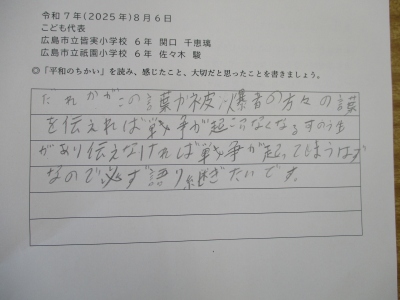 令和７年(2025年)８月６日
こども代表
広島市立皆実小学校　６年　関口　千恵璃
広島市立祇園小学校　６年　佐々木　駿
◎「平和のちかい」を読み、感じたこと、大切だと思ったことを書きましょう。
だれかがこの言葉が被爆者の方々の言葉
を伝えれば戦争が起こらなくなるすのう性
があり伝えなければ戦争が起ってしまうはず
なので必ず語り継ぎたいです。